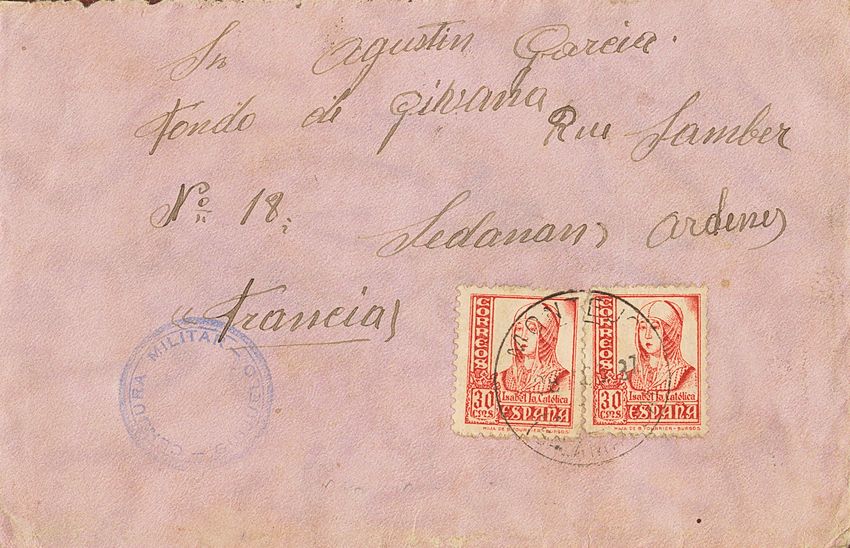 Sr Agustin Garcia.
Fondo de Givana
Rue Samber
Nº 18;
Sedanan, Ardenes
(Francia)
CENSURA MILITAR
CORREOS
30 CTMS
Isabel la Católica
ESPAÑA
HIJA DE B. FOURNIER-BURGOS
CORREOS
30 CTMS
Isabel la Católica
ESPAÑA
HIJA DE B. FOURNIER-BURGOS